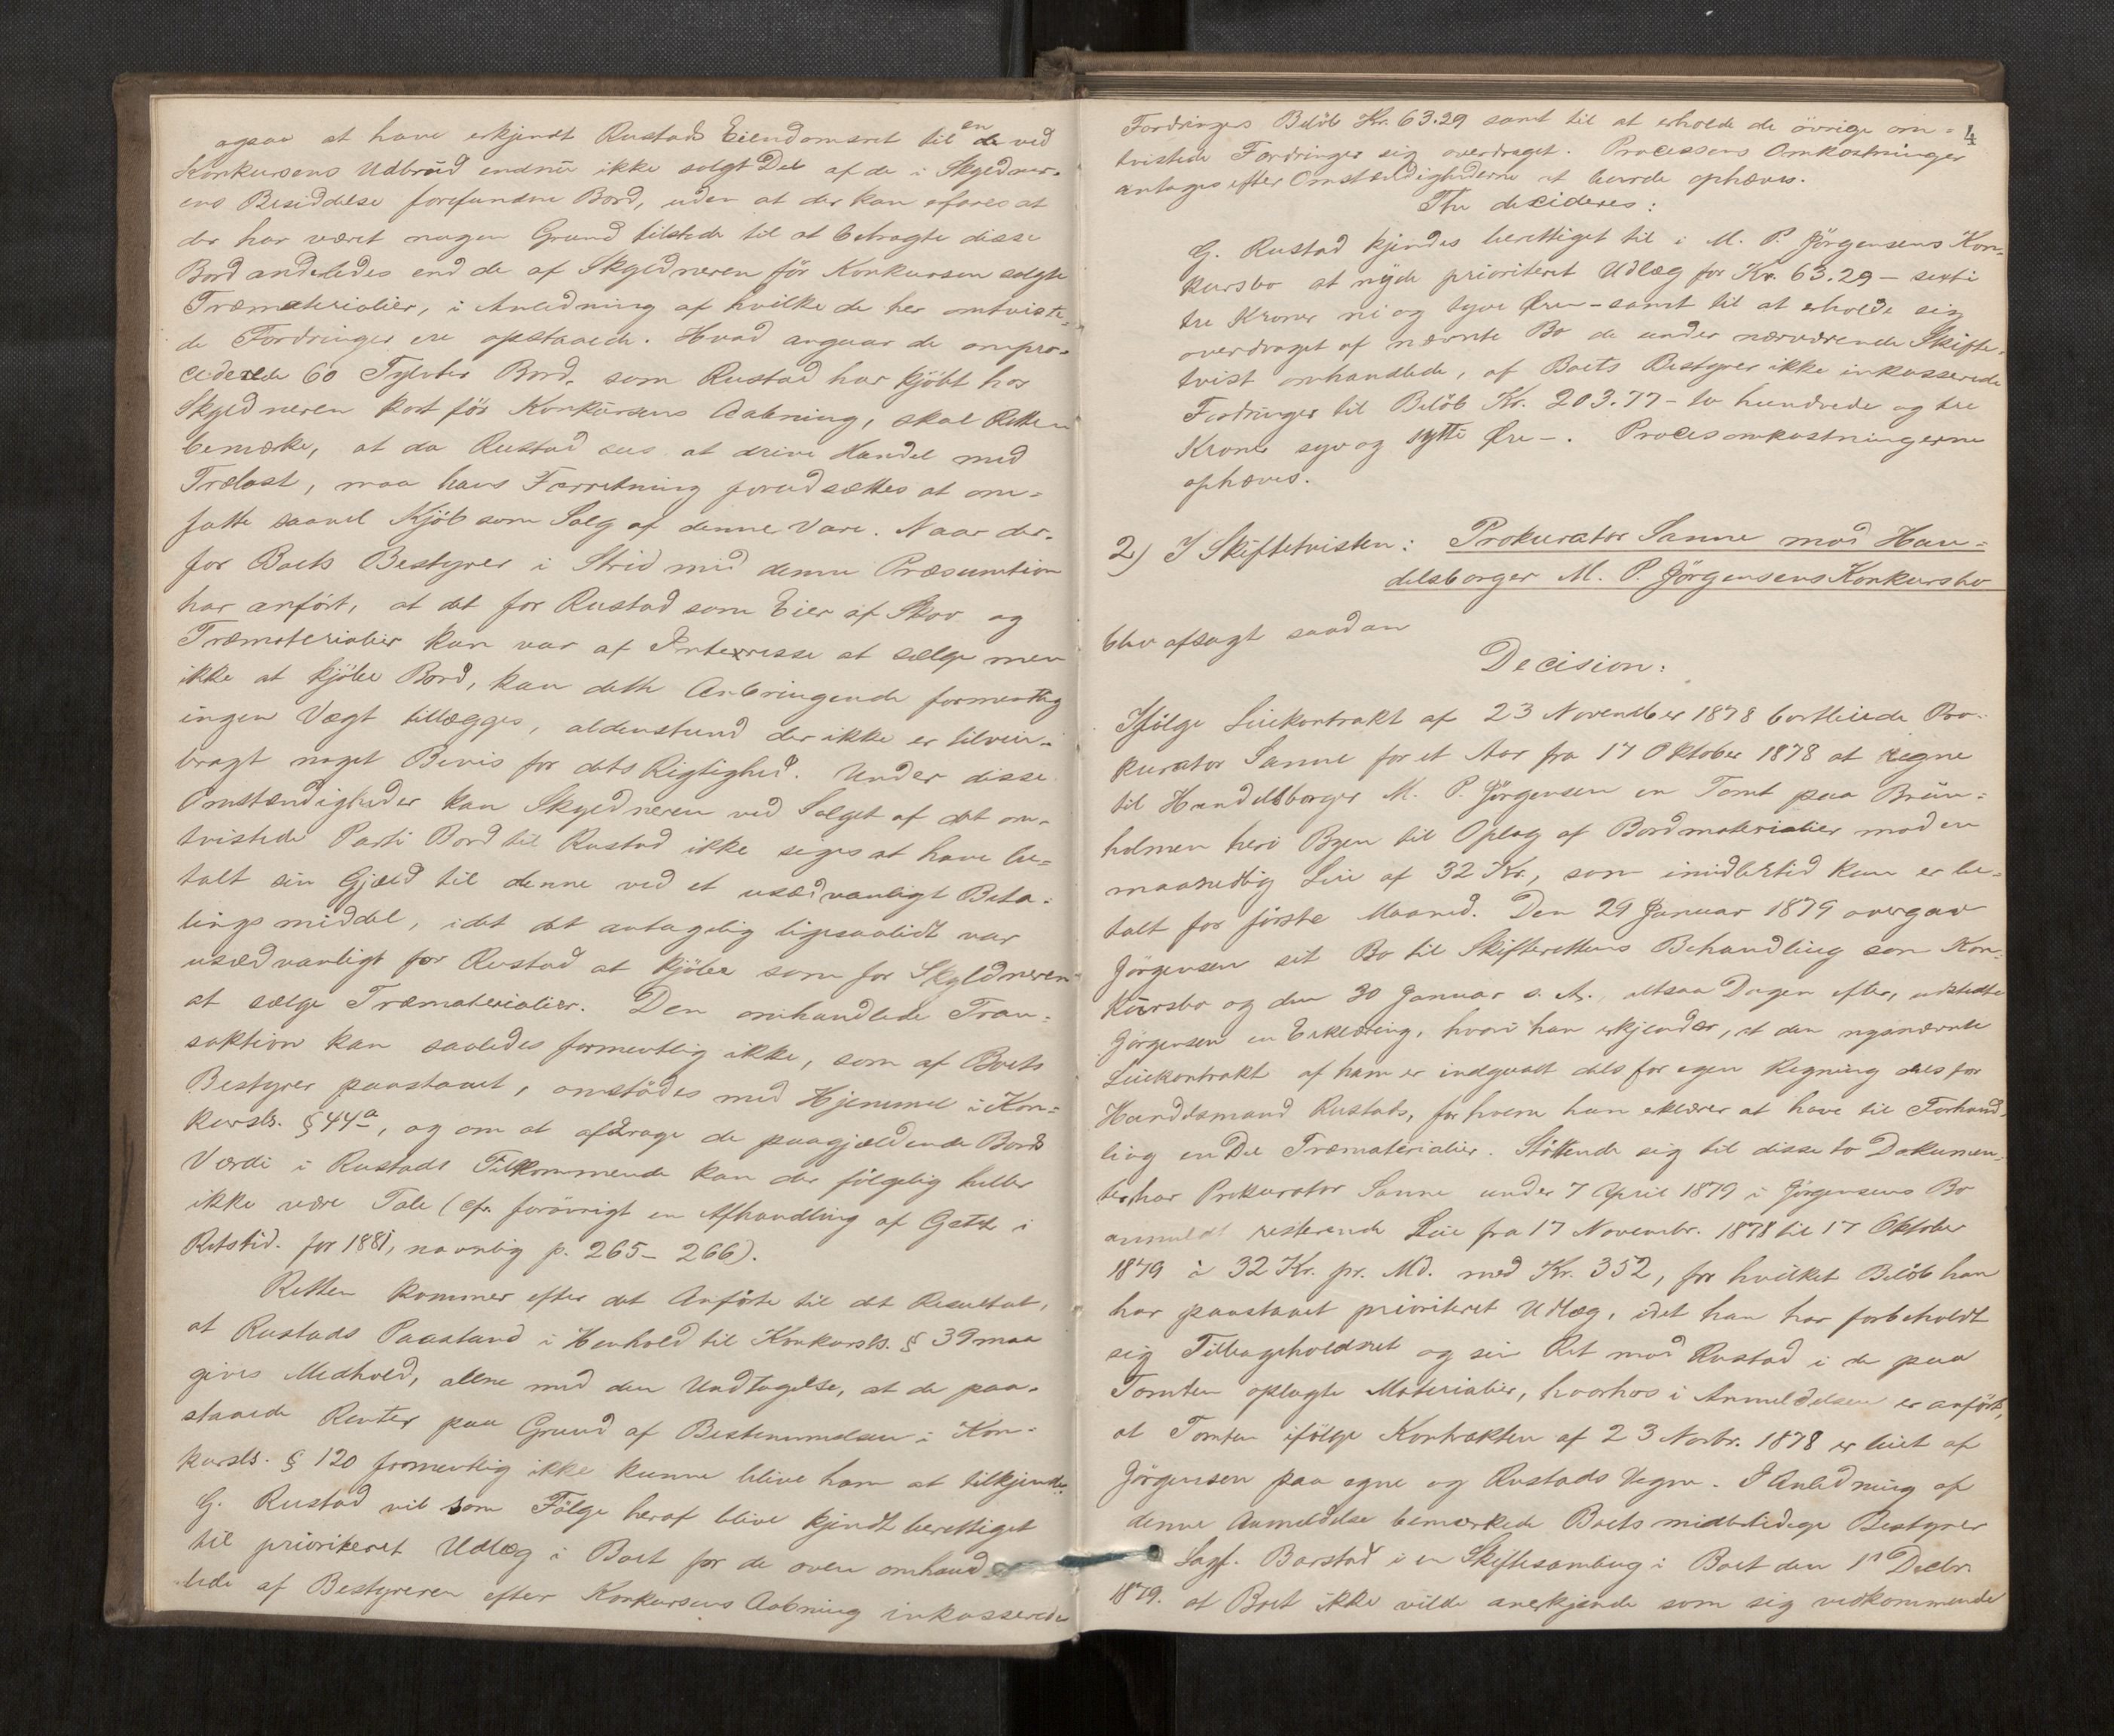 ogsaa at have erkjendt Rustads Eiendomsret til en de ved
Konkursens Udbrud endnu ikke solgt Del af de i Skyldner-
ens Besiddelse forefundne Bord, uden at der kan sees at
der har været nogen Grund tilstede til at betragte disse
Bord anderledes end de af Skyldneren för Konkursen solgte
Træmaterialier, i Anledning af hvilke de her omtviste-
de Fordringer ere opstaaede. Hvad angaar de ompro-
cederede 60 Tylvter Bord, som Rustad har kjöbt hos
Skyldneren kort för Konkursens Aabning, skal Retten
bemærke, at da Rustad sees at drive Handel med
Trælast, maa hans Forretning forudsættes at om-
fatte saavel Kjöb som Salg af denne Vare. Naar der-
for Boets Bestyrer i Strid med denne Præsumtion
har anfört, at det for Rustad som Eier af Skov og
Træmaterialier kun var af Interesse at sælge men
ikke at kjöbe Bord, kan dette Anbringende formentlig
ingen Vægt tillægges, aldenstund der ikke er tilveie-
bragt noget Bevis for dets Rigtighed. Under disse
Omstændigheder kan Skyldneren ved Salget af det om-
tvistede Parti Bord til Rustad ikke siges at have be-
talt sin Gjæld til denne ved et usædvanligt Beta-
lingsmiddel, idet det antagelig ligesaalidt var
usædvanligt for Rustad at kjöbe som for Skyldneren
at sælge Træmaterialier. Den omhandlede Tran-
saktion kan saaledes formentlig ikke, som af Boets
Bestyrer paastaaet, omstödes med Hjemmel i Kon-
kursls. § 44a, og om at afdrage de paagjældende Bords
Værdi i Rustads Tilkommende kan der fölgelig heller
ikke være Tale (cfr. forövrigt en Afhandling af Getz i
Retstid. for 1881, navnlig p. 265-266).
Retten kommer efter det Anförte til det Resultat,
at Rustads Paastand i Henhold til Konkursls. § 39 maa
gives Medhold, alene med den Undtagelse, at de paa-
staaede Renter paa Grund af Bestemmelsen i Kon-
kursls. § 120 formentlig ikke kunne blive ham at tilkjende.
G. Rustad vil som Fölge heraf blive kjendt berettiget
til prioriteret Udlæg i Boet for de oven omhand-
lede af Bestyreren efter Konkursens Aabning inkasserede
4
Fordringers Belöb Kr. 63.29 samt til at erholde de övrige om-
tvistede Fordringer sig overdraget. Processens Omkostninger
antages efter Omstændighederne at burde ophæves.
Thi decideres:
G. Rustad kjendes berettiget til i M. P. Jörgensens Kon-
kursbo at nyde prioriteret Udlæg for Kr. 63.29 - sexti
tre Kroner ni og tyve Öre - samt til at erholde sig
overdraget af nævnte Bo de under nærværende Skifte-
tvist omhandlede, af Boets Bestyrer ikke inkasserede
Fordringer til Belöb Kr. 203.77 - to hundrede og tre
Kroner syv og sytti Öre -. Procesomkostningerne
ophæves.
2) I Skiftetvisten: Prokurator Sanne mod Han-
delsborger M. P. Jörgensens Konkursbo
blev afsagt saadan
Decision:
Ifölge Leiekontrakt af 23 November 1878 bortleiede Pro-
kurator Sanne for et Aar fra 17 Oktober 1878 at regne
til Handelsborger M. P. Jörgensen en Tomt paa Brun-
holmen heri Byen til Oplag af Bordmaterialier mod en
maanedlig Leie af 32 Kr., som imidlertid kun er be-
talt for förste Maaned. Den 29 Januar 1879 overgav
Jörgensen sit Bo til Skifterettens Behandling som Kon-
kursbo og den 30 Januar s. A., altsaa Dagen efter, udstedte
Jörgensen en Erklæring, hvori han erkjender, at den nysnævnte
Leiekontrakt af ham er indgaaet dels for egen Regning dels for
Handelsmand Rustads, for hvem han erklærer at have til Forhand-
ling en Del Træmaterialier. Stöttende sig til disse to Dokumen-
ter, har Prokurator Sanne under 7 April 1879 i Jörgensens Bo
anmeldt resterende Leie fra 17 Novembr. 1878 til 17 Oktober
1879 à 32 Kr. pr. Md. med Kr. 352, for hvilket Belöb han
har paastaaet prioriteret Udlæg, idet han har forbeholdt
sig Tilbageholdsret og sin Ret mod Rustad i de paa
Tomten oplagte Materialier, hvorhos i Anmeldelsen er anfört,
at Tomten ifölge Kontrakten af 23 Novbr. 1878 er leiet af
Jörgensen paa egne og Rustads Vegne. I Anledning af
denne Anmeldelse bemærkede Boets midlertidige Bestyrer
Sagf. Barstad i en Skiftesamling i Boet den 11 Decbr.
1879. at Boet ikke vilde anerkjende som sig vedkommende